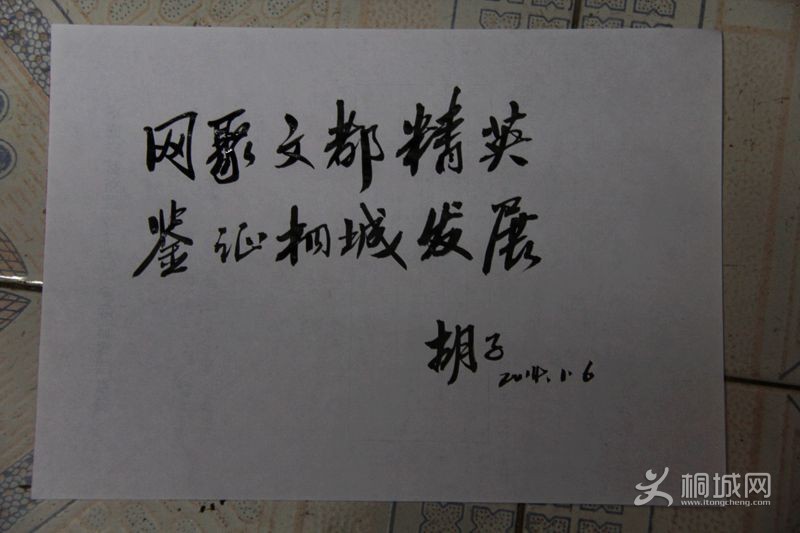 网聚文都精英
鉴证桐城发展
胡子
2014.1.6
桐城网
www.itongcheng.com